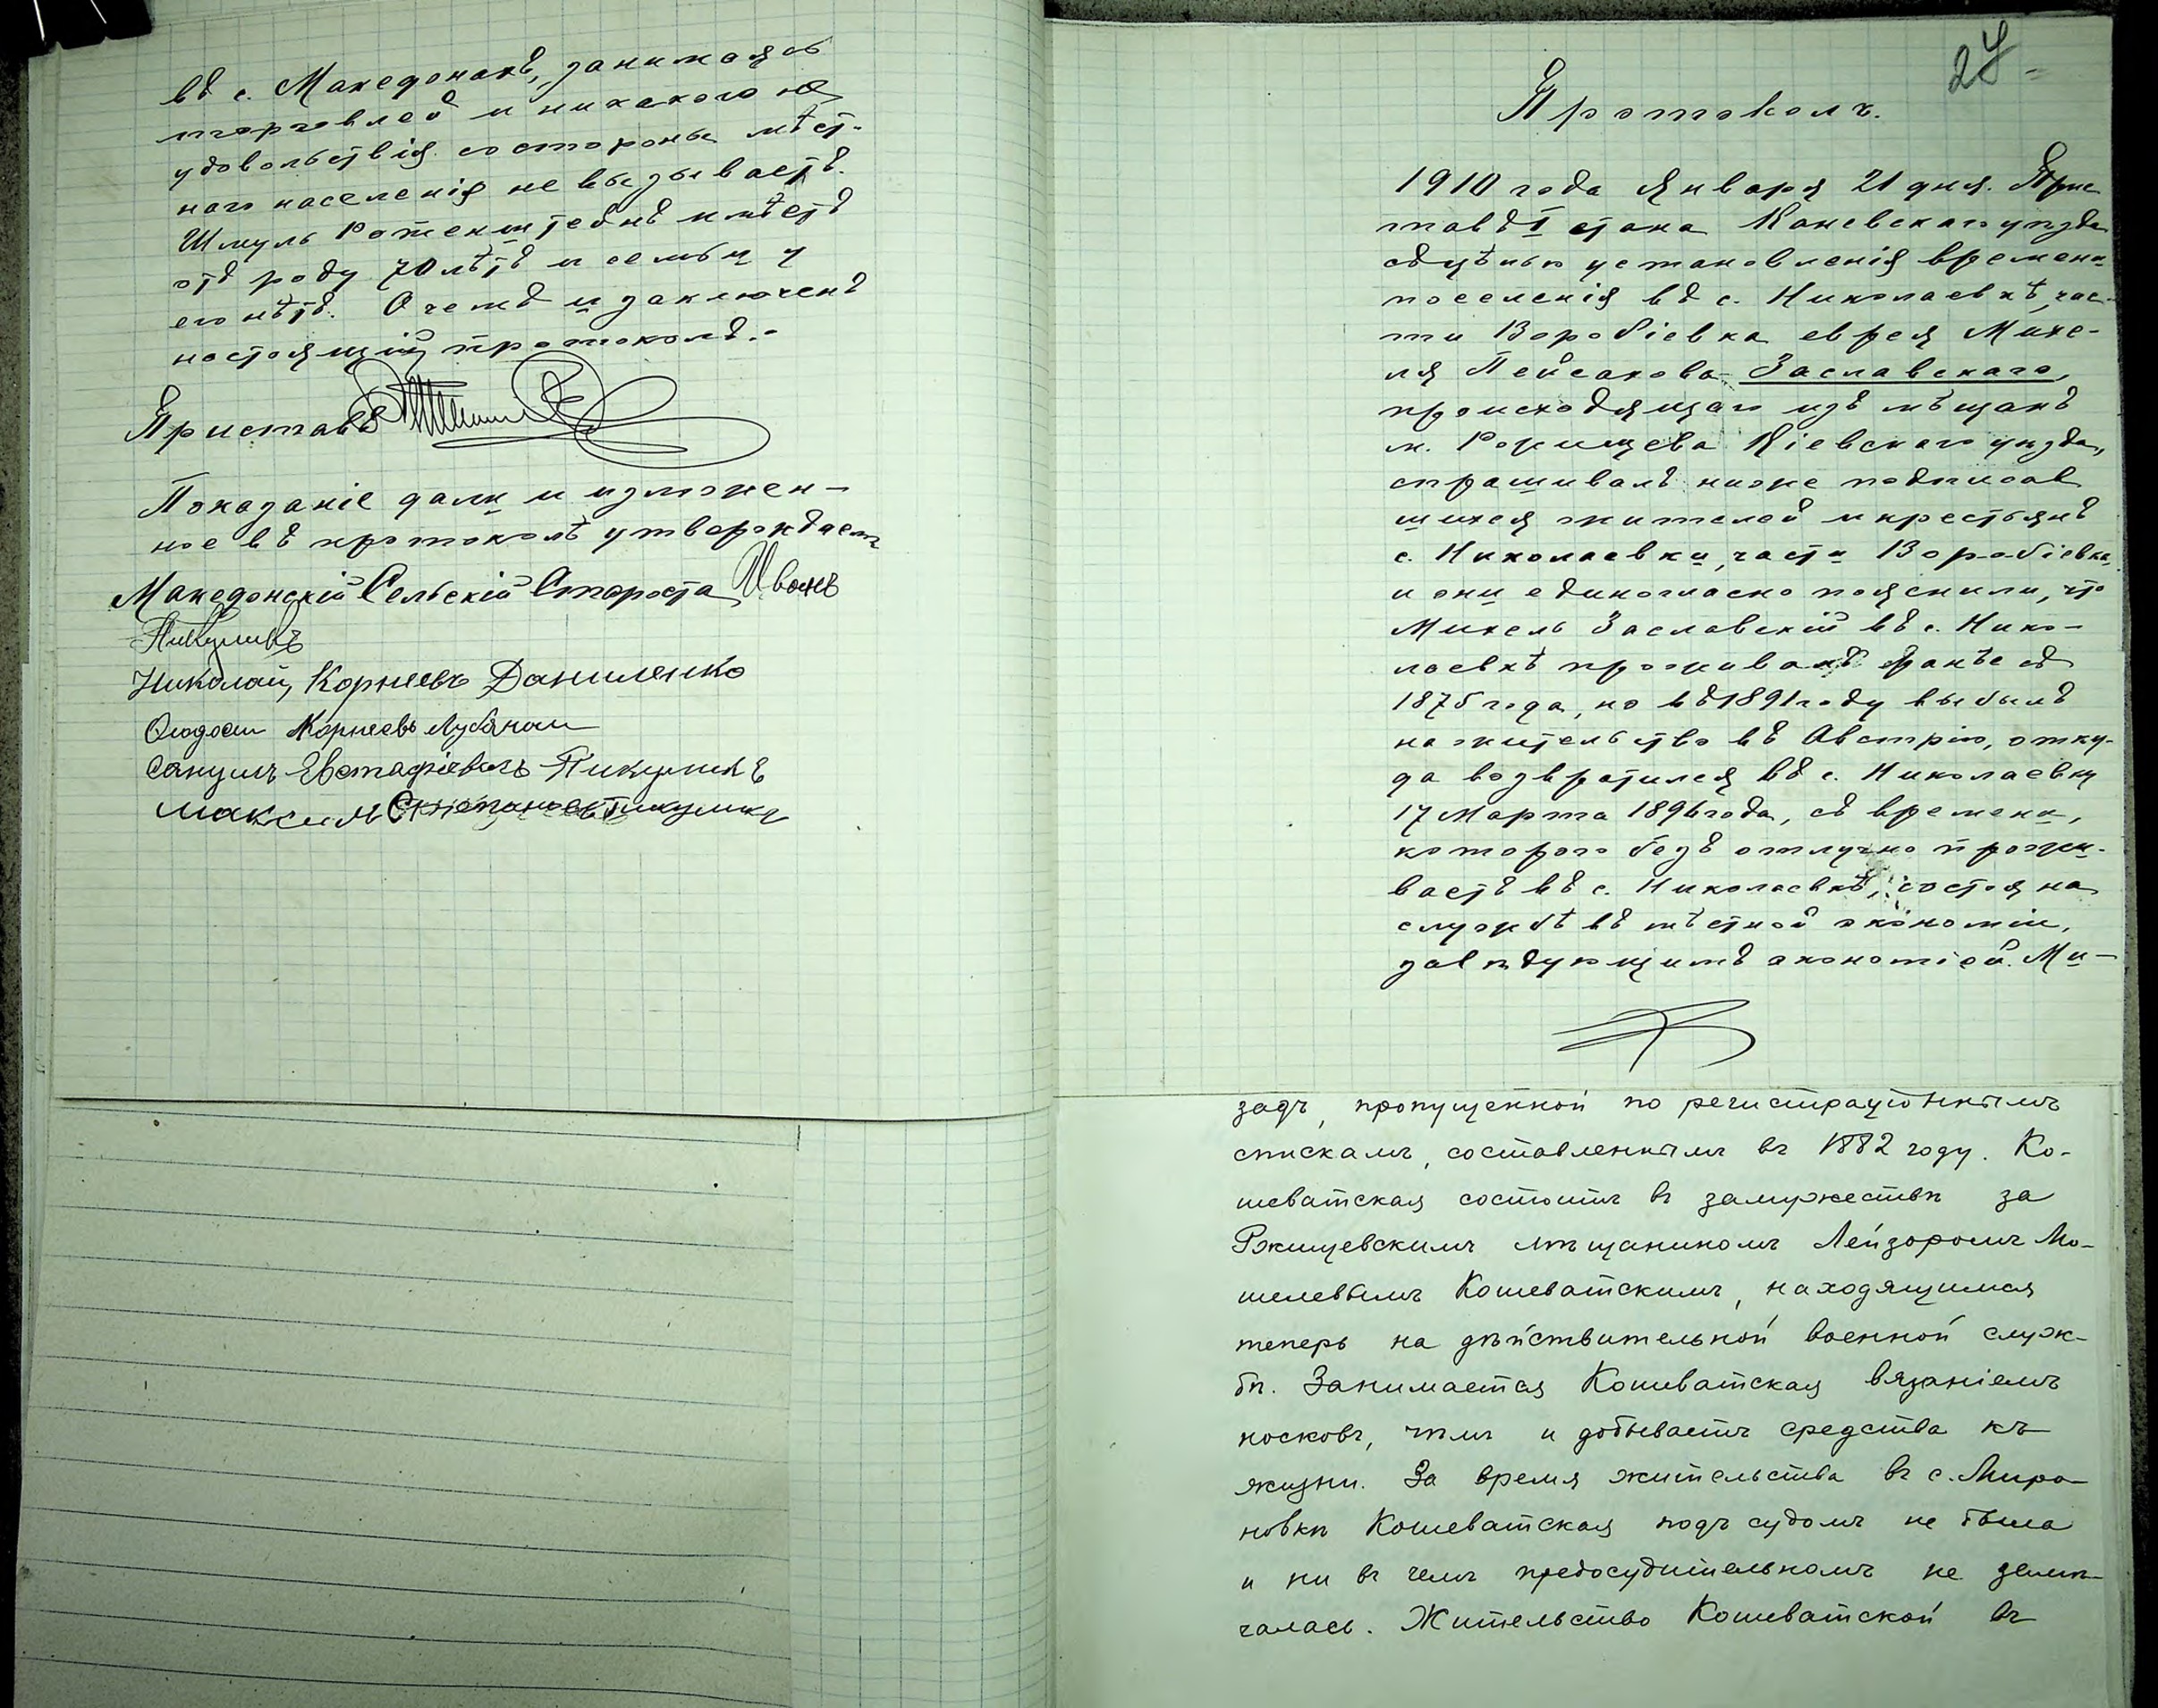 въ с. Македонахъ, занимаясь
торговлей и никакого не
удовольствія со стороны мѣст-
наго населенія не вызываетъ.
Шмуль Ротенштейнъ имѣетъ
отъ роду 70 лѣтъ и семьи у
его нѣтъ. О чемъ и заключенъ
настоящій протоколъ.-
Приставъ
Показаніе дали и изложен-
ное въ протоколѣ утверждаемъ
Македонскій Сельскій Староста Иванъ
Пикуликъ
Николай Корнеевъ Даниленко
Федосій Корнеевъ
Евстафіевичъ Пикуликъ
Максимъ Степановъ Пикуликъ
27
Протоколъ.
1910 года Января 21 дня. При
ставъ I стана Каневскаго уѣзда
съ цѣлью установленія времени
поселенія въ с. Николаевкѣ, час-
ти Воробіевка еврея Михе-
ля Пейсахова Заславскаго,
происходящаго изъ мѣщанъ
м. Ржищева Кіевскаго уѣзда,
спрашивалъ ниже подписав
шихся жителей и крестьянъ
с. Николаевки, части Воробіевка,
и они единогласно пояснили, что
Михель Заславскій въ с. Нико-
лаевкѣ проживалъ ранѣе съ
1875 года, но въ 1891 году выбылъ
на жительство въ Австрію, отку-
да возвратился въ с. Николаевку
17 Марта 1896 года, съ времени,
котораго безъ отлучно прожи-
ваетъ въ с. Николаевкѣ, состоя на
службѣ въ мѣстной экономіи,
завѣдующимъ экономіей. Ми-
задъ, пропущенной по регистраціоннымъ
спискамъ, составленнымъ въ 1882 году. Ко-
шеватская состоитъ въ замужествѣ за
Ржищевскимъ мѣщаниномъ Лейзоромъ Мо-
шелевымъ Кошеватскимъ, находящимся
теперь на дѣйствительной военной служ-
бѣ. Занимается Кошеватская вязаніемъ
носковъ, чѣмъ и добываетъ средства къ
жизни. За время жительства въ с. Миро-
новкѣ Кошеватская подъ судомъ не была
и ни въ чемъ предосудительномъ не замѣ-
чалась. Жительство Кошеватской въ